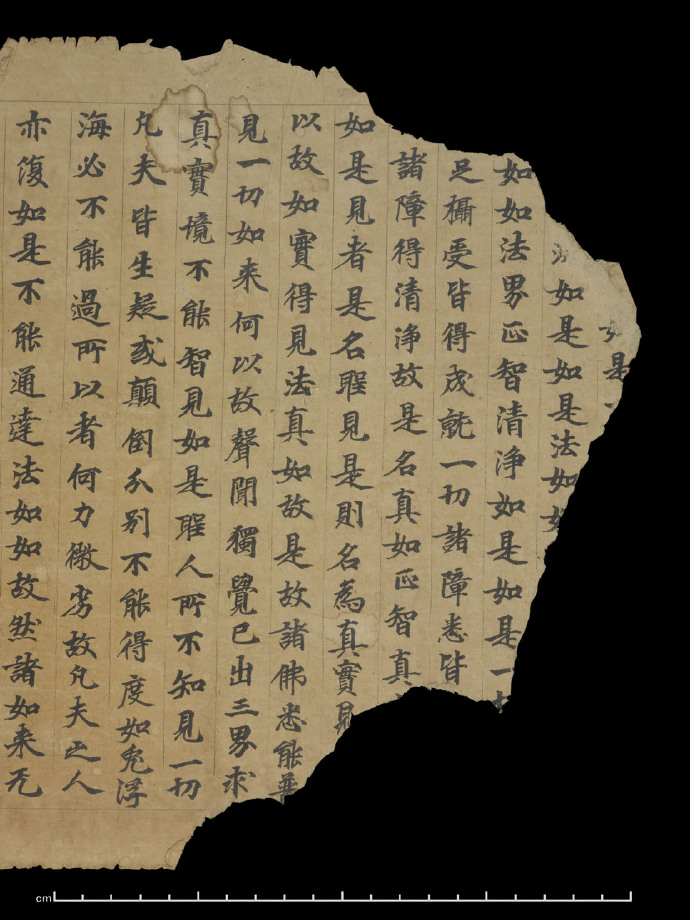 是
如是如是法如
如如法界正智清浄如是如是一切
足攝受皆得成就一切諸障悉皆
諸障得清浄故是名真如正智真
如是見者是名聖見是則名為真實見
以故如實得見法真如故是故諸佛悉能普
見一切如来何以故聲聞獨覺已出三界求
真實境不能智見如是聖人所不知見一切
凡夫皆生疑或顛倒分別不能得度如兔浮
海必不能過所以者何力微劣故凡夫之人
亦復如是不能通達法如如故然諸如来无